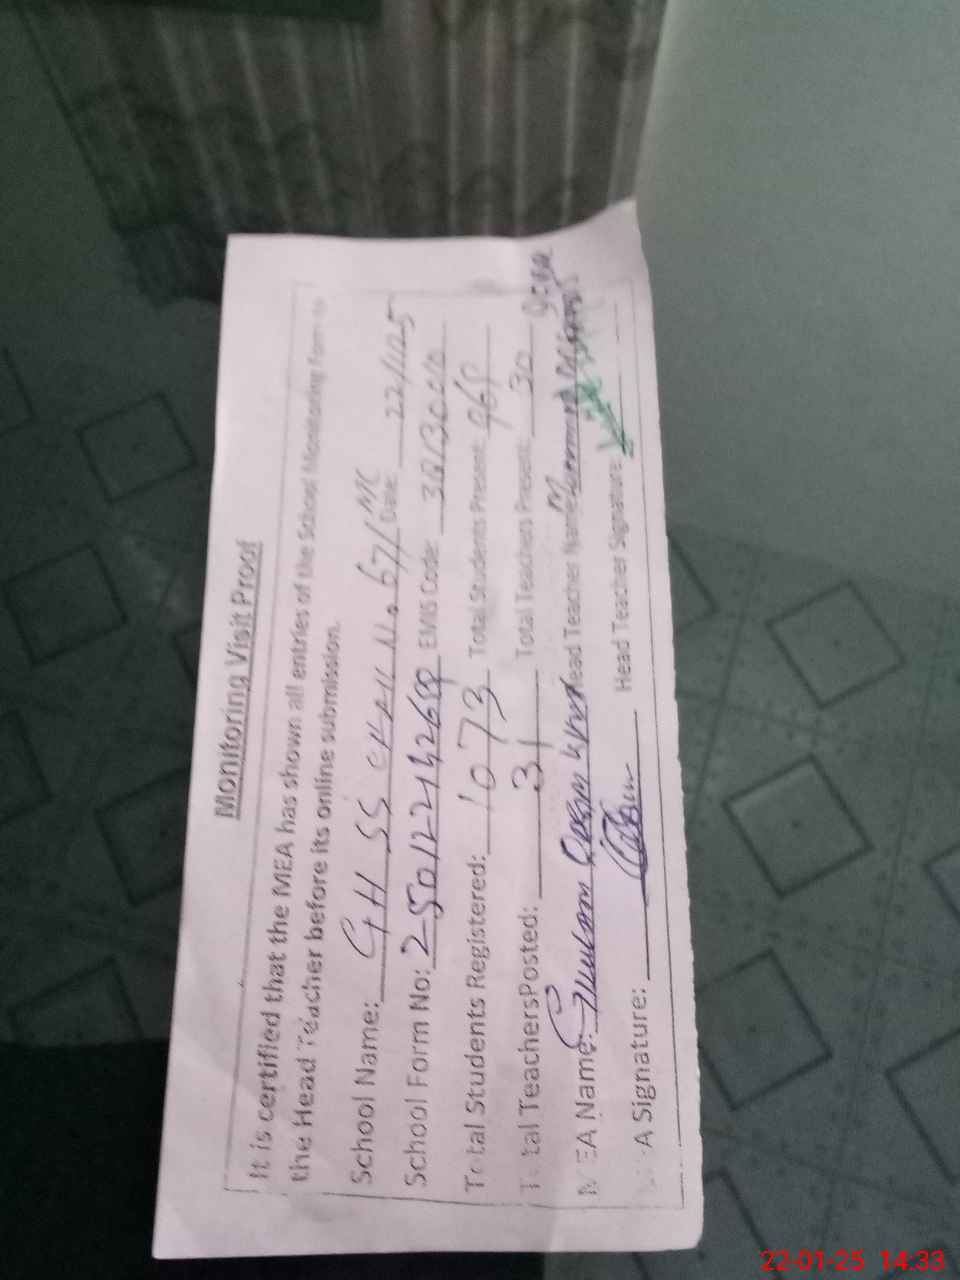 Monitoring Visit Proof
It is certified that the MEA has shown all entries of the School Monitoring Form to
the Head Teacher before its online submission.
School Name: GHSS CHAK No 67/MC Date: 22/1/25
School Form No: EMIS Code:
Total Students Registered: 1073 Total Students Present: 968
Total Teachers Posted: 31 Total Teachers Present: 30
MEA Name: Head Teacher Name:
MEA Signature: Head Teacher Signature:
22-01-25 14:33